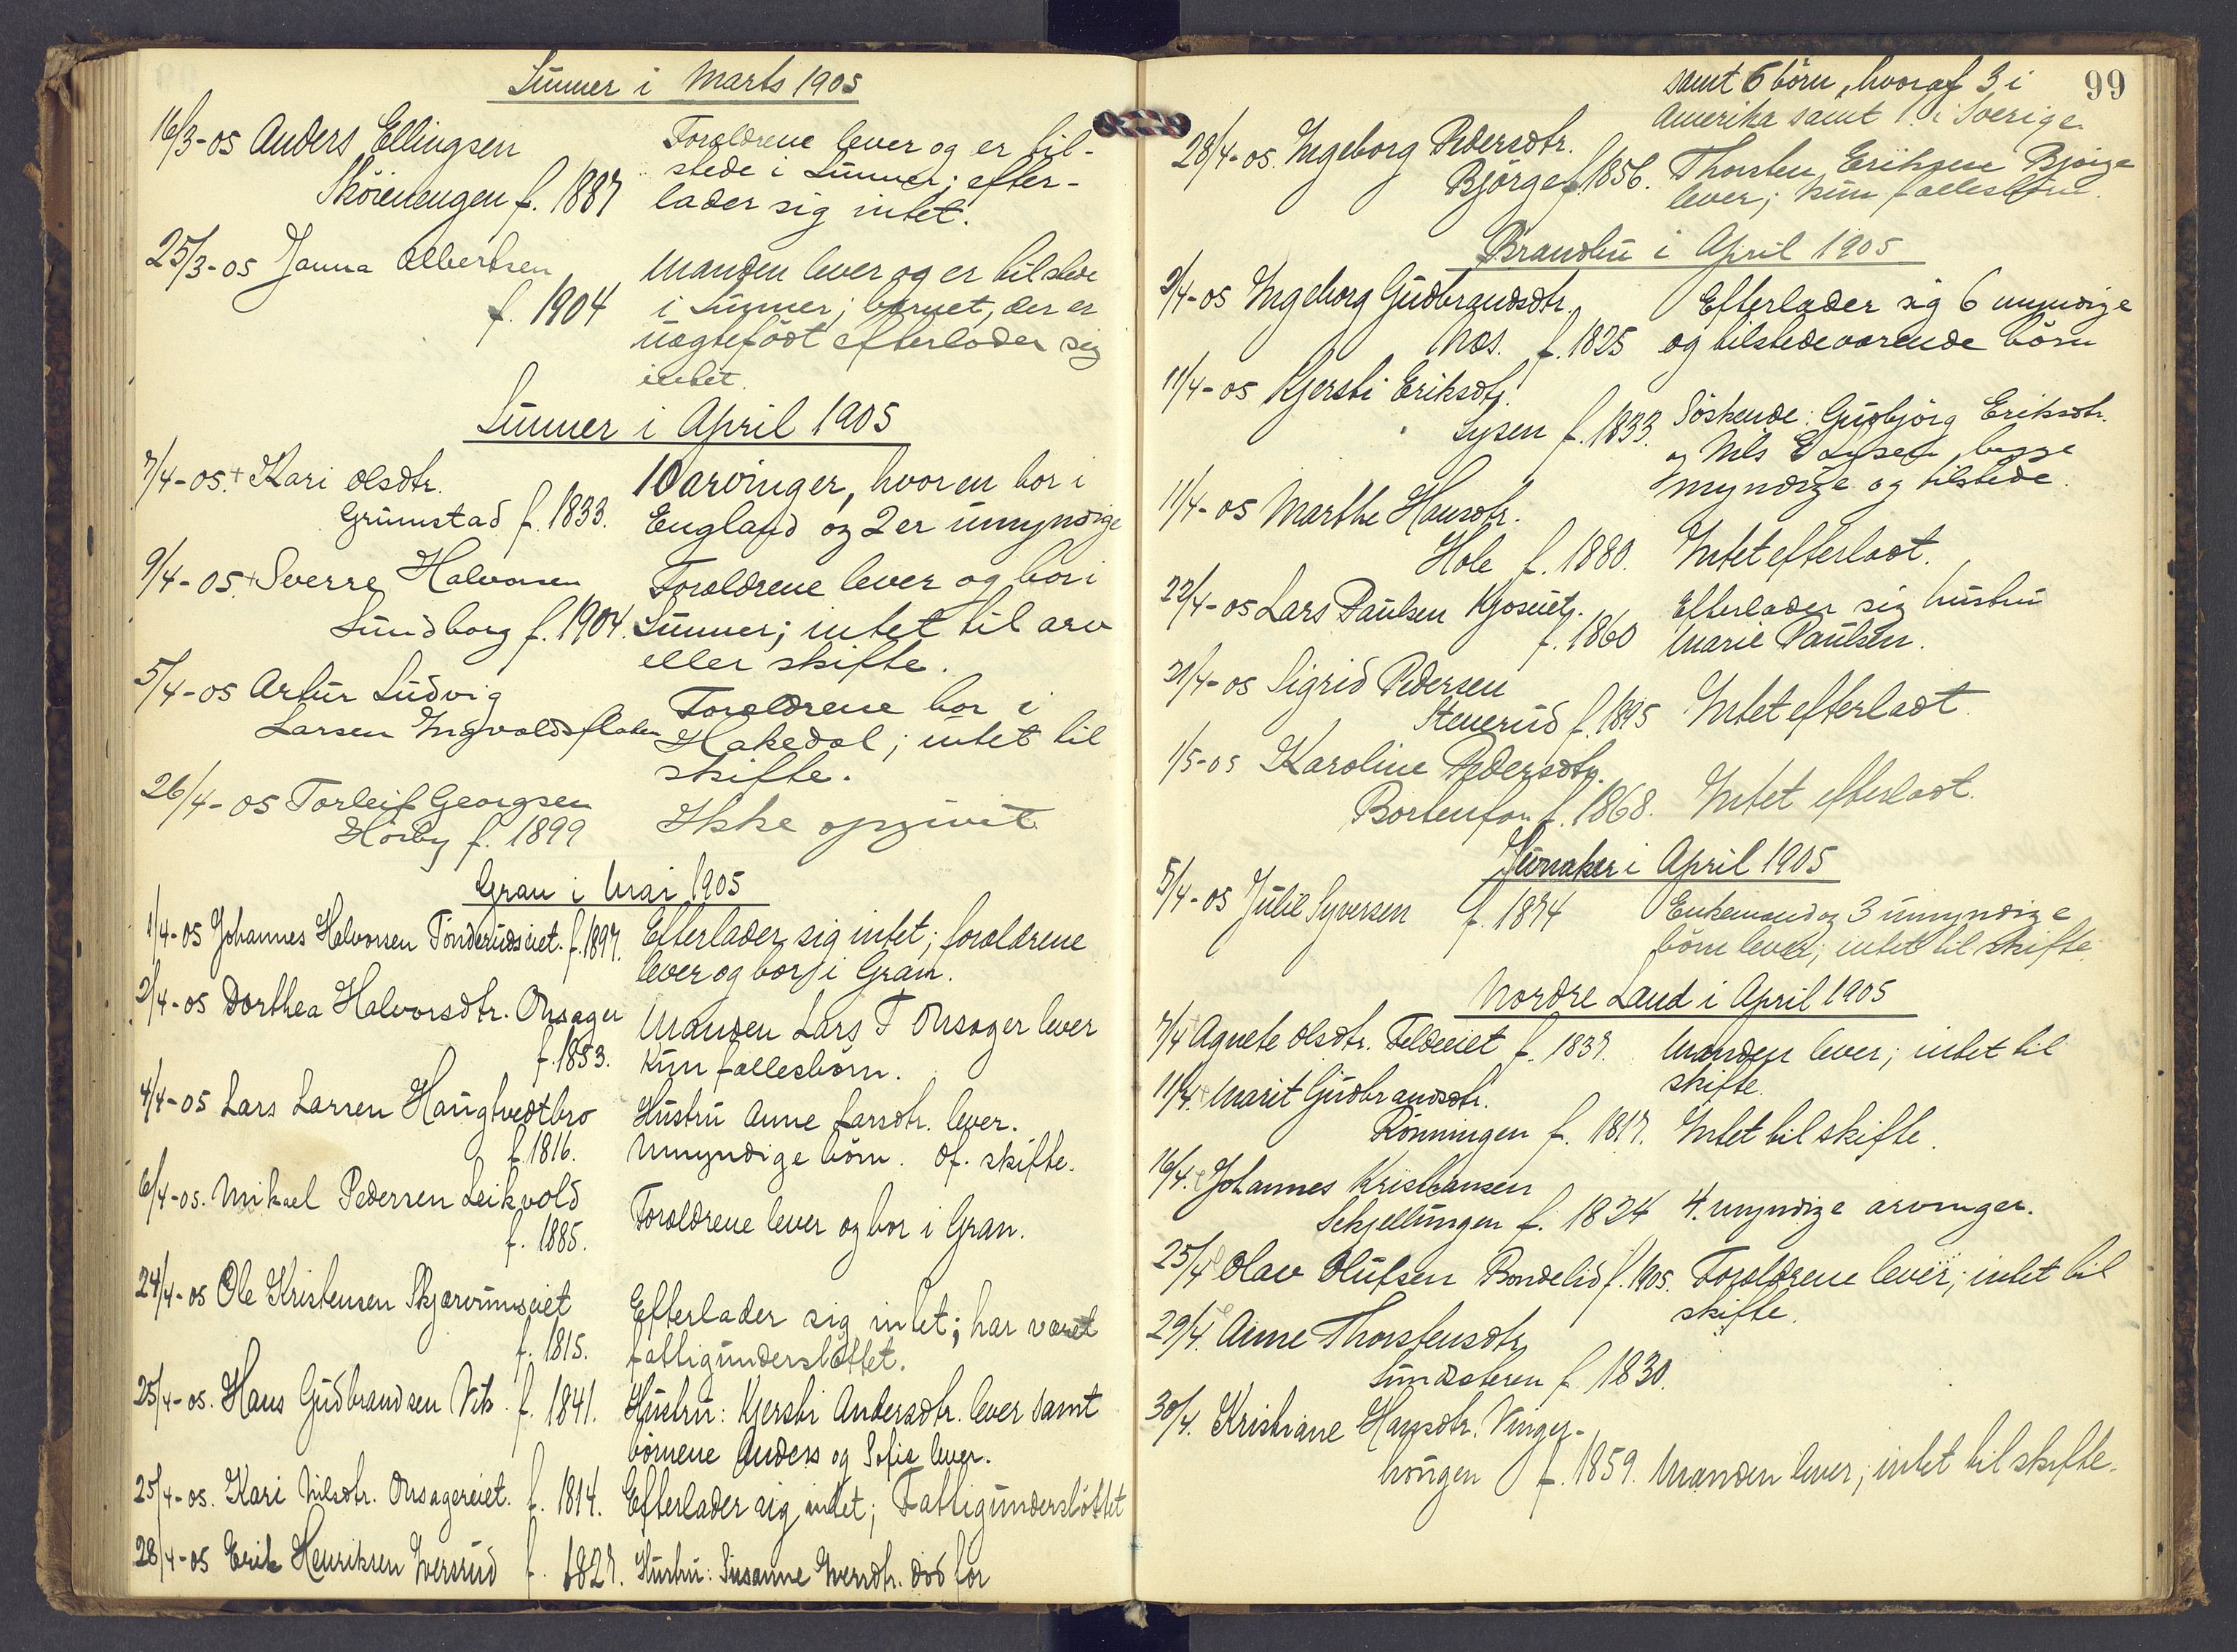 Lunner i Marts 1905
16/3-05 Anders Ellingsen
Skøienengen f. 1887
Forældrene lever og er til-
stede i Lunner; efter-
lader sig intet.
25/3-05 Janna Albertsen
f. 1904
Manden lever og er tilstede
i Lunner; barnet, der er
uægtefødt efterlader sig
intet.
Lunner i April 1905
7/4-05.+ Kari Olsdtr.
Grinnstad f. 1833.
10 arvinger, hvor en bor i
England og 2 er umyndige
9/4-05.+ Sverre Halvorsen
Lundborg f. 1904.
Forældrene lever og bor i
Lunner; intet til arv
eller skifte.
5/4-05 Artur Ludvig
Larsen Ingvoldsflaten
Forældrene bor i
Hakedal; intet til
skifte.
26/4-05 Torleif Georgsen
Hørby f. 1899
Ikke opgivet
Gran i Mai 1905
1/4-05 Johannes Halvorsen Tønderudseiet. f. 1897.
Efterlader sig intet; forældrene
lever og bor i Gran.
2/4-05 Dorthea Halvorsdtr. Onsager
f. 1853.
Manden Lars T Onsager lever
Kun fællesbørn.
4/4-05 Lars Larsen Haugtvedtbro
f. 1816.
Hustru Anne Larsdtr. lever.
Umyndige børn. Of. skifte.
6/4-05. Mikael Pedersen Leikvold
f. 1885.
Forældrene lever og bor i Gran.
24/4-05 Ole Kristensen Skjærvumseiet
f. 1815.
Efterlader sig intet; har været
fattigunderstøttet.
25/4-05. Hans Gudbrandsen Vik. f. 1841.
Hustru: Kjersti Andersdtr. lever samt
børnene Anders og Sofie lever.
25/4-05. Kari Nilsdtr. Onsagereiet. f. 1814.
Efterlader sig intet; Fattigunderstøttet
28/4-05 Erik Henriksen Iversrud f. 1827.
Hustru: Susanne Iversdtr. død før
99
samt 6 børn, hvoraf 3 i
Amerika samt 1 i Sverige
28/4-05. Ingeborg Pedersdtr.
Bjørge f. 1856.
Thorsten Eriksen Bjørge
lever; kun fællesbørn.
Brandbu i April 1905
9/4-05 Ingeborg Gudbrandsdtr.
Næs. f. 1825
Efterlader sig 6 myndige
og tilstedeværende børn
11/4-05 Kjersti Eriksdtr.
Lysen f. 1833.
Søskende: Gudbjørg Eriksdtr.
og Nils E Lysen begge
myndige og tilstede.
11/4-05 Marthe Hansdtr.
Hole f. 1880.
Intet efterladt.
22/4-05 Lars Paulsen Kjoseiet.
f. 1860
Efterlader sig hustru
Marie Paulsen.
21/4-05 Sigrid Pedersen
Stenerud f. 1895
Intet efterladt.
1/5-05 Karoline Pedersdtr.
f. 1868.
Intet efterladt.
Jevnaker i April 1905
5/4-05 Julie Syversen f. 1874
Enkemand og 3 umyndige
børn lever; intet til skifte.
Nordre Land i April 1905
7/4 Agnete Olsdtr. Feldeeiet f. 1837.
Manden lever; intet til
skifte.
11/4. Marit Gudbrandsdtr.
Rønningen f. 1817.
Intet til skifte.
16/4. Johannes Kristiansen
Schjellungen f. 1824
4. myndige arvinger.
25/4 Olav Olufsen Bondelid f. 1905.
Forældrene lever; intet til
skifte.
29/4. Anne Thorstensdtr.
Lundsteren f. 1830.
30/4. Kristiane Hansdtr. Vinger-
haugen f. 1859.
Manden lever; intet til skifte.